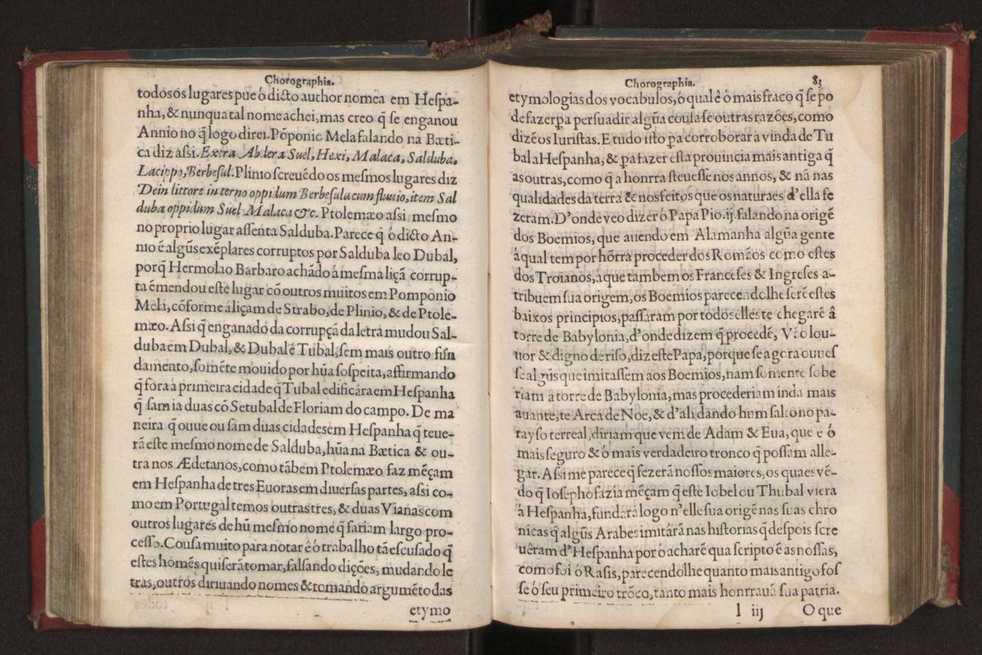 Chorographia.
todos os lugares pue ó dicto author nomea em Hespa-
nha, & nunqua tal nome achei, mas creo q̃ se enganou
Annio no q̃ logo direi. Põponio Mela falando na Bæti-
ca diz assi. Extra Abdera Suel, Hexi, Malaca, Salduba,
Lacippo, Berbesul. Plinio screuẽdo os mesmos lugares diz
Dein littore interno oppidum Berbesula cum fluuio, item Sal
duba oppidum Suel Malaca &c. Ptolemæo assi mesmo
no proprio lugar assenta Salduba. Parece q̃ ó dicto An-
nio ẽ algũs exẽplares corruptos por Salduba leo Dubal,
porq̃ Hermolao Barbaro achãdo á mesma liçã corrup-
ta ẽmendou este lugar cõ outros muitos em Pomponio
Mela, cõforme á liçam de Strabo, de Plinio, & de Ptole-
mæo. Assi q̃ enganado da corrupçã da letra mudou Sal-
duba em Dubal, & Dubal ẽ Tubal, sem mais outro fun
damento, somẽte mouido por hũa sospeita, affirmando
q̃ fora á primeira cidade q̃ Tubal edificára em Hespanha
q̃ sam ia duas cõ Setubal de Floriam do campo. De ma
neira q̃ ouue ou sam duas cidades em Hespanha q̃ teue-
rã este mesmo nome de Salduba, hũa na Bætica & ou-
tra nos Ædetanos, como tãbem Ptolemæo faz mẽçam
em Hespanha de tres Euoras em diuersas partes, assi co-
mo em Portugal temos outras tres, & duas Vianas com
outros lugares de hũ mesmo nome q̃ fariam largo pro-
cesso. Cousa muito para notar é ó trabalho tã escusado q̃
estes homẽs quiserã tomar, falsando dições, mudando le
tras, outros diriuando nomes & tomando argumẽto das
etymo
Chorographia. 83
etymologias dos vocabulos, ó qual é ó mais fraco q̃ se pó
de fazer pa persuadir algũa cousa se outras razões, como
dizẽ os Iuristas. E tudo isto pa corroborar a vinda de Tu
bal a Hespanha, & pa fazer esta prouincia mais antiga q̃
as outras, como q̃ a honrra steuesse nos annos, & nã nas
qualidades da terra & nos feitos que os naturaes d'ella fe
zeram. D'onde veo dizer ó Papa Pio. ij. falando na origẽ
dos Boemios, que auendo em Alamanha algũa gente
á qual tem por hõrra proceder dos Romãos como estes
dos Troianos, á que tambem os Franceses & Ingreses a-
tribuem sua origem, os Boemios parecendolhe serẽ estes
baixos principios, passáram por todos elles te chegarẽ á
torre de Babylonia, d'onde dizem q̃ procedẽ, Vão lou-
uor & digno de riso, diz este Papa, porque se agora ouues
se algũs que imitassẽm aos Boemios, nam somente sobe
riam á torre de Babylonia, mas procederiam inda mais
auante, te Arca de Noe, & d'ahi dando hum salto no pa-
rayso terreal, diriam que vem de Adam & Eua, que é ó
mais seguro & ó mais verdadeiro tronco q̃ possam alle-
gar. Assi me parece q̃ fezerã nossos maiores, os quaes vẽ-
do q̃ Iosepho fazia mẽçam q̃ este Iobel ou Thubal viera
á Hespanha, fundarã logo n'elle sua origẽ nas suas chro
nicas q̃ algũs Arabes imitárã nas historias q̃ despois scre
uêram d'Hespanha por ó acharẽ qua scripto ẽ as nossas,
como foi ó Rasis, parecendolhe quanto mais antigo fos
se ó seu primeiro trõco, tanto mais honrraua sua patria.
l iij O que